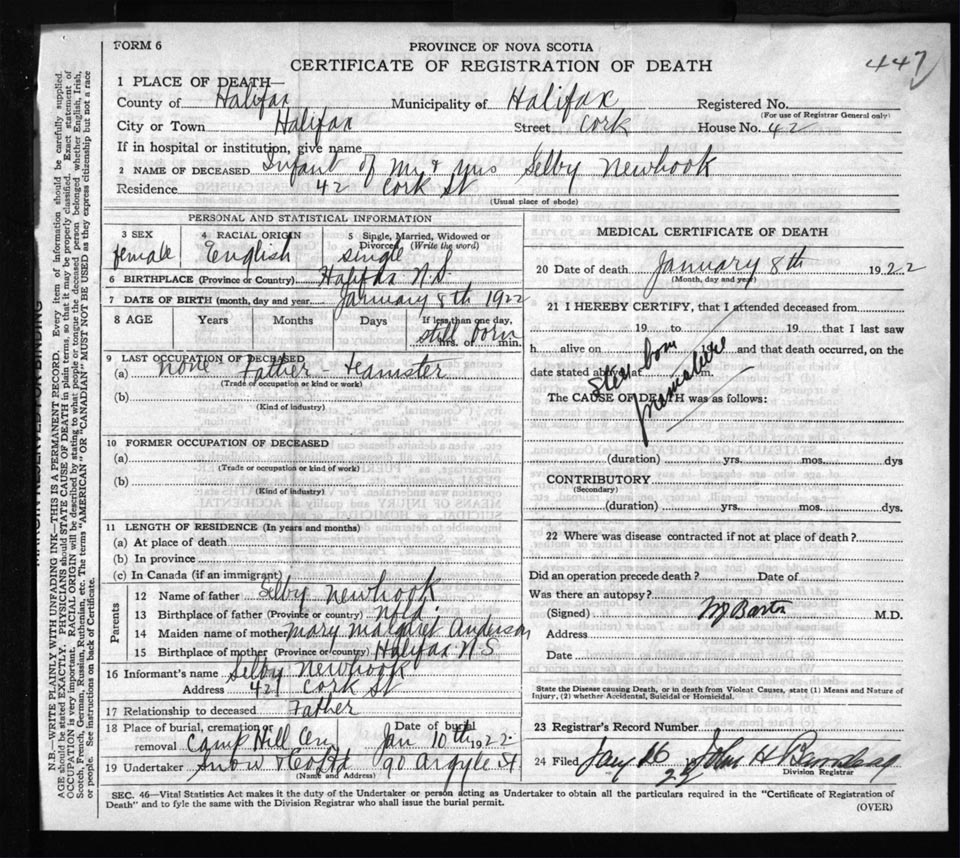 FORM 6
PROVINCE OF NOVA SCOTIA
CERTIFICATE OF REGISTRATION OF DEATH
447
1 PLACE OF DEATH—
County of Halifax Municipality of Halifax Registered No.
(For use of Registrar General only)
City or Town Halifax Street Cork House No. 42
If in hospital or institution, give name
2 NAME OF DECEASED Infant of Mr & Mrs Selby Newhook
Residence 42 Cork St
(Usual place of abode)
PERSONAL AND STATISTICAL INFORMATION
3 SEX 4 RACIAL ORIGIN 5 Single, Married, Widowed or Divorced (Write the word)
female English single
6 BIRTHPLACE (Province or Country) Halifax N.S.
7 DATE OF BIRTH (month, day and year) January 8th 1922
8 AGE Years Months Days If less than one day,
still born hrs. or min.
9 LAST OCCUPATION OF DECEASED
(a) none Father - teamster
(Trade or occupation or kind or work)
(b)
(Kind of industry)
10 FORMER OCCUPATION OF DECEASED
(a)
(Trade or occupation or kind of work)
(b)
(Kind of industry)
11 LENGTH OF RESIDENCE (In years and months)
(a) At place of death
(b) In province
(c) In Canada (if an immigrant)
Parents
12 Name of father Selby Newhook
13 Birthplace of father (Province or country) Nfld.
14 Maiden name of mother Mary Margaret Anderson
15 Birthplace of mother (Province or country) Halifax N.S
16 Informant's name Selby Newhook
Address 42 Cork St
17 Relationship to deceased Father
18 Place of burial, cremation or removal Camp Hill Cem Date of burial Jan 10th 1922
19 Undertaker Snow & Co Ltd 90 Argyle St
(Name and Address)
MEDICAL CERTIFICATE OF DEATH
20 Date of death January 8th 1922
(Month, day and year)
21 I HEREBY CERTIFY, that I attended deceased from
19 to 19 that I last saw
h alive on and that death occurred, on the
date stated above, at m.
The CAUSE OF DEATH was as follows:
Still born
premature
(duration) yrs. mos. dys
CONTRIBUTORY
(Secondary)
(duration) yrs. mos. dys
22 Where was disease contracted if not at place of death?
Did an operation precede death? Date of
Was there an autopsy?
(Signed) M.D.
Address
Date
State the Disease causing Death, or in death from Violent Causes, state (1) Means and Nature of
Injury, (2) whether Accidental, Suicidal or Homicidal.
23 Registrar's Record Number
24 Filed Jany 26 22 John H
Division Registrar
SEC. 46—Vital Statistics Act makes it the duty of the Undertaker or person acting as Undertaker to obtain all the particulars required in the "Certificate of Registration of
Death" and to fyle the same with the Division Registrar who shall issue the burial permit.
(OVER)
MARGIN RESERVED FOR BINDING
N.B.—WRITE PLAINLY WITH UNFADING INK—THIS IS A PERMANENT RECORD. Every item of information should be carefully supplied.
AGE should be stated EXACTLY. PHYSICIANS should STATE CAUSE OF DEATH in plain terms, so that it may be properly classified. Exact statement of
OCCUPATION is very important. RACIAL ORIGIN will be described by stating to what people or tongue the deceased person belonged whether English, Irish,
Scotch, French, German, Russian, Ruthenian, etc. The terms "AMERICAN" OR "CANADIAN" MUST NOT BE USED as they express citizenship but not a race
or people. See instructions on back of Certificate.